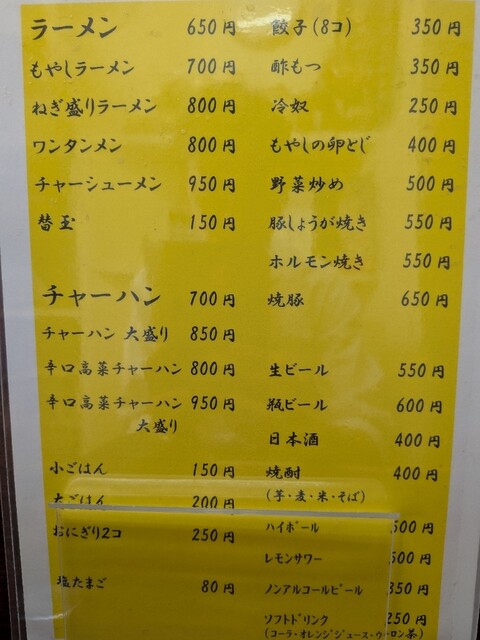 ラーメン 650円
もやしラーメン 700円
ねぎ盛りラーメン 800円
ワンタンメン 800円
チャーシューメン 950円
替玉 150円
チャーハン 700円
チャーハン 大盛り 850円
辛口高菜チャーハン 800円
辛口高菜チャーハン 950円
大盛り
小ごはん 150円
大ごはん 200円
おにぎり2コ 250円
塩たまご 80円
餃子(8コ) 350円
酢もつ 350円
冷奴 250円
もやしの卵とじ 400円
野菜炒め 500円
豚しょうが焼き 550円
ホルモン焼き 550円
焼豚 650円
生ビール 550円
瓶ビール 600円
日本酒 400円
焼酎 400円
(芋・麦・米・そば)
ハイボール 500円
レモンサワー 500円
ノンアルコールビール 350円
ソフトドリンク 250円
(コーラ・オレンジジュース・ウーロン茶)